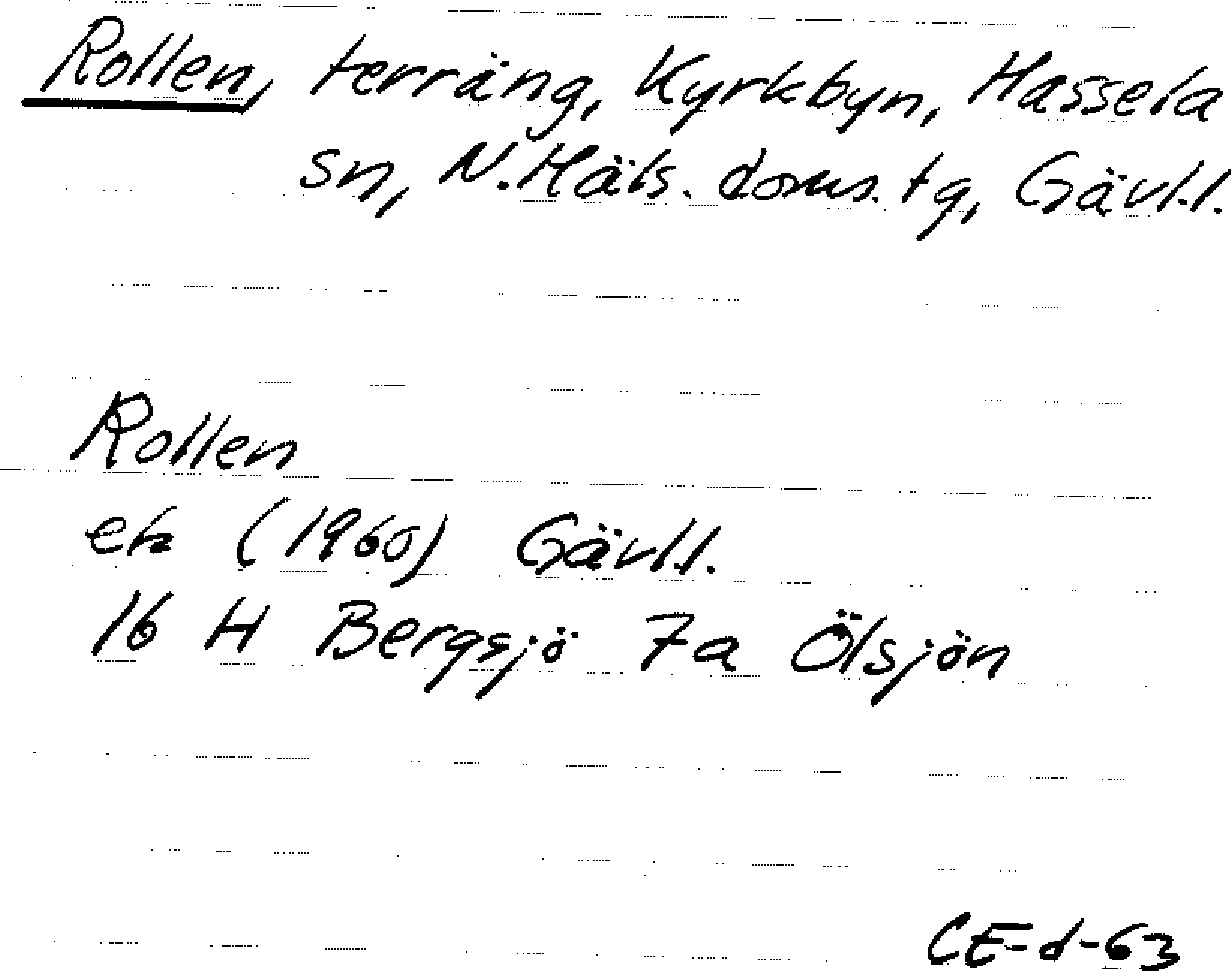 Rollen, terräng, Kyrkbyn, Hassela
sn, N. Häls. doms. tg, Gävl.l.
Rollen
ek (1960) Gävl.l.
16 H Bergsjö 7a Ölsjön
CE-d-63